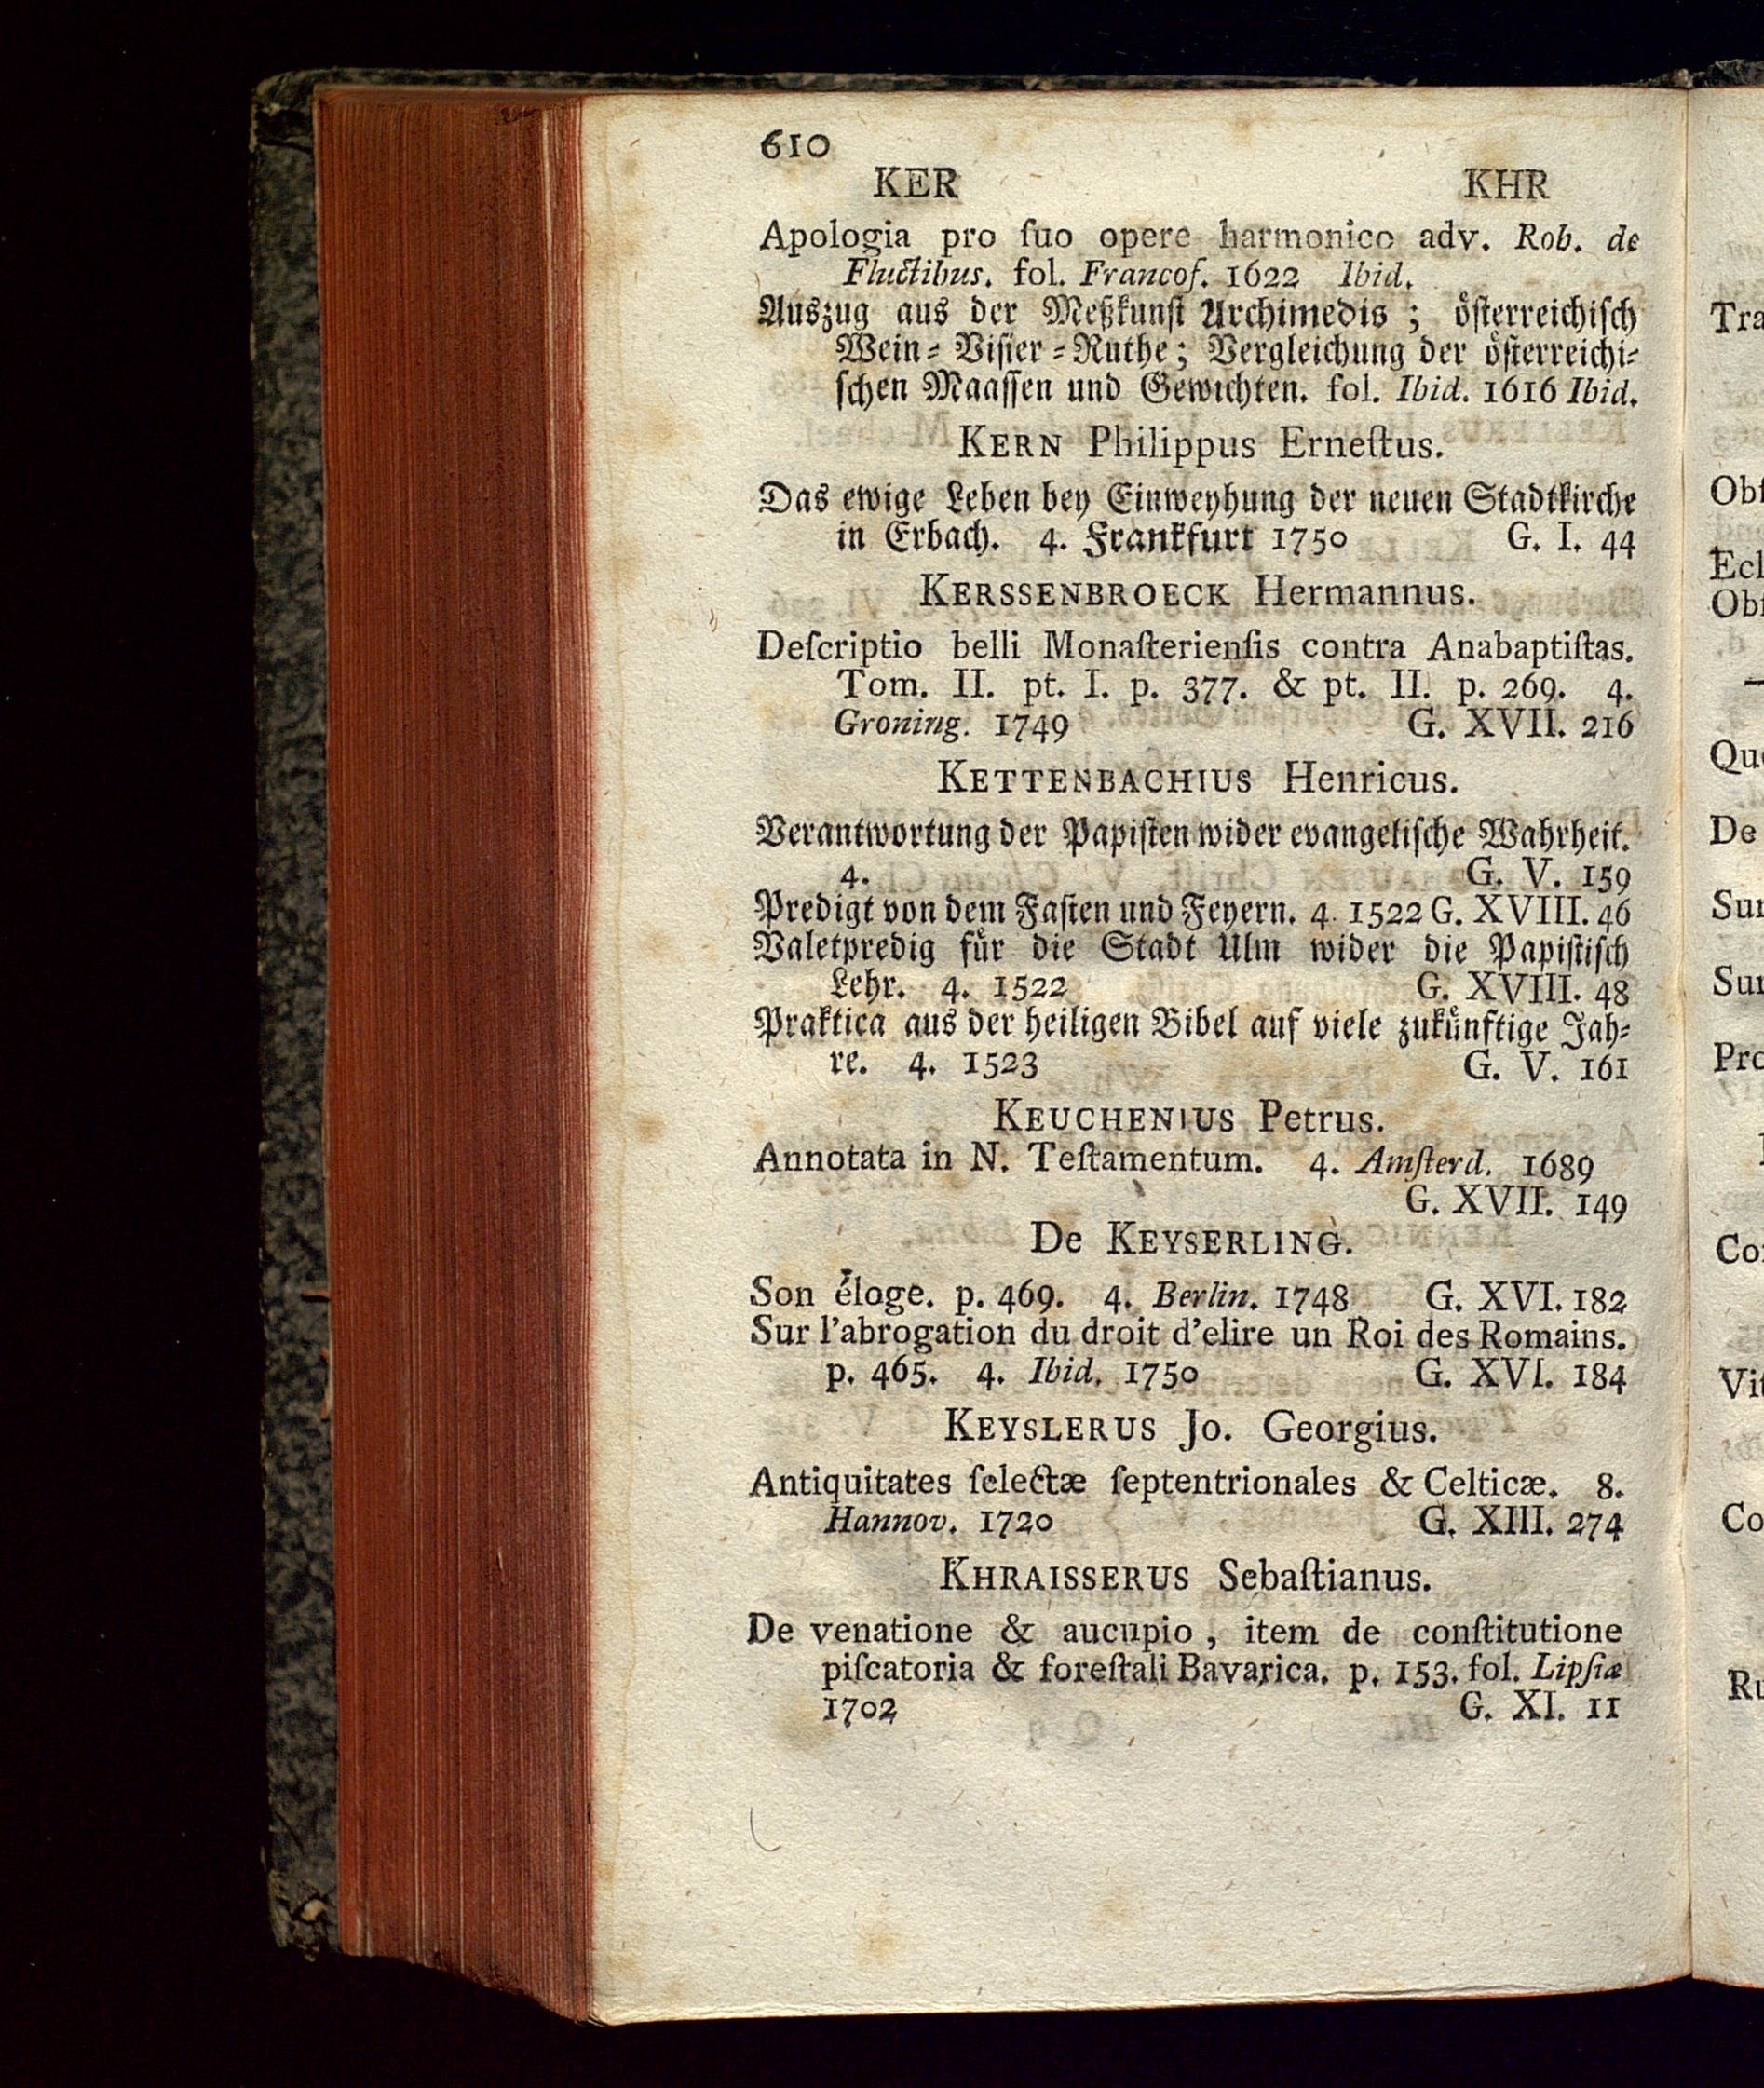 610
KER KHR
Apologia pro ſuo opere harmonico adv. Rob. de
Fluctibus. fol. Francof. 1622 Ibid.
Auszug aus der Meßkunſt Archimedis ; öſterreichiſch
Wein-Viſier-Ruthe; Vergleichung der öſterreichi-
ſchen Maaſſen und Gewichten. fol. Ibid. 1616 Ibid.
KERN Philippus Erneſtus.
Das ewige Leben bey Einweyhung der neuen Stadtkirche
in Erbach. 4. Frankfurt 1750 G. I. 44
KERSSENBROECK Hermannus.
Deſcriptio belli Monaſterienſis contra Anabaptiſtas.
Tom. II. pt. I. p. 377. & pt. II. p. 269. 4.
Groning. 1749 G. XVII. 216
KETTENBACHIUS Henricus.
Verantwortung der Papiſten wider evangeliſche Wahrheit.
4. G. V. 159
Predigt von dem Faſten und Feyern. 4. 1522 G. XVIII. 46
Valetpredig für die Stadt Ulm wider die Papiſtiſch
Lehr. 4. 1522 G. XVIII. 48
Praktica aus der heiligen Bibel auf viele zukünftige Jah-
re. 4. 1523 G. V. 161
KEUCHENIUS Petrus.
Annotata in N. Teſtamentum. 4. Amſterd. 1689
G. XVII. 149
De KEYSERLING.
Son éloge. p. 469. 4. Berlin. 1748 G. XVI. 182
Sur l'abrogation du droit d'elire un Roi des Romains.
p. 465. 4. Ibid. 1750 G. XVI. 184
KEYSLERUS Jo. Georgius.
Antiquitates ſelectæ ſeptentrionales & Celticæ. 8.
Hannov. 1720 G. XIII. 274
KHRAISSERUS Sebaſtianus.
De venatione & aucupio, item de conſtitutione
piſcatoria & foreſtali Bavarica. p. 153. fol. Lipſiæ
1702 G. XI. 11